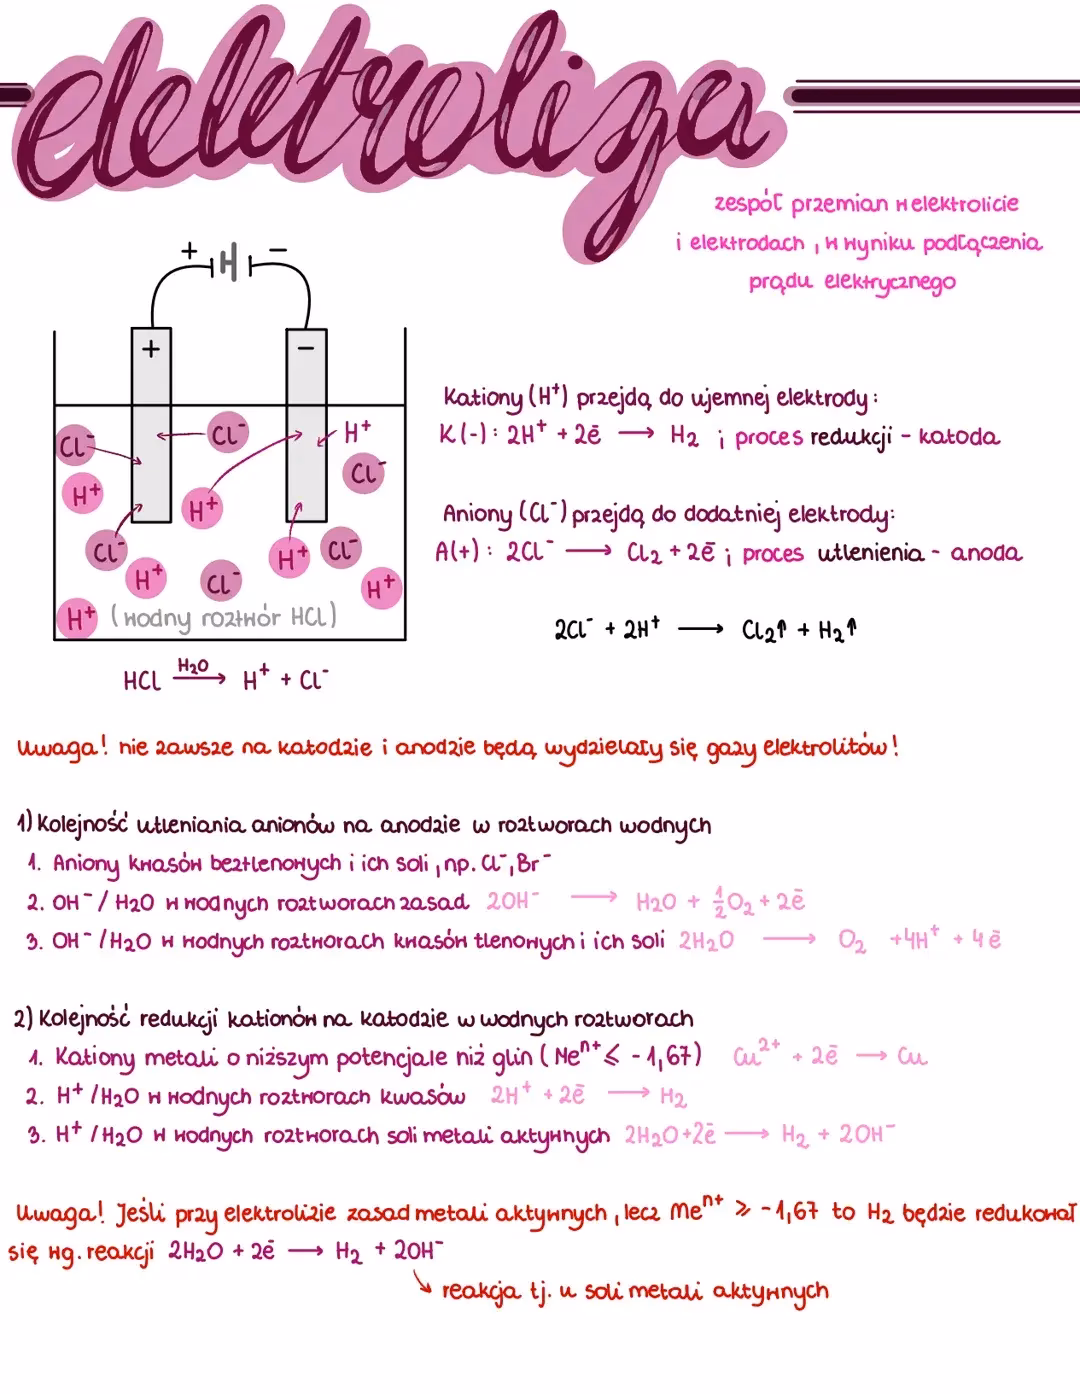 elektroliza
zespół przemian w elektrolicie
i elektrodach, w wyniku podłączenia
prądu elektrycznego
+ −
+ −
Cl⁻ Cl⁻ H⁺
Cl⁻
H⁺ H⁺
Cl⁻ H⁺ Cl⁻
H⁺ Cl⁻ H⁺
H⁺ (wodny roztwór HCl)
HCl H₂O → H⁺ + Cl⁻
Kationy (H⁺) przejdą do ujemnej elektrody:
K(-): 2H⁺ + 2ē → H₂ ; proces redukcji - katoda
Aniony (Cl⁻) przejdą do dodatniej elektrody:
A(+): 2Cl⁻ → Cl₂ + 2ē ; proces utlenienia - anoda
2Cl⁻ + 2H⁺ → Cl₂↑ + H₂↑
Uwaga! nie zawsze na katodzie i anodzie będą wydzielały się gazy elektrolitów!
1) Kolejność utleniania anionów na anodzie w roztworach wodnych
1. Aniony kwasów beztlenowych i ich soli, np. Cl⁻, Br⁻
2. OH⁻/ H₂O w wodnych roztworach zasad 2OH⁻ → H₂O + ½O₂ + 2ē
3. OH⁻/H₂O w wodnych roztworach kwasów tlenowych i ich soli 2H₂O → O₂ +4H⁺ + 4ē
2) Kolejność redukcji kationów na katodzie w wodnych roztworach
1. Kationy metali o niższym potencjale niż glin (Meⁿ⁺ ⩽ -1,67) Cu²⁺ + 2ē → Cu
2. H⁺/H₂O w wodnych roztworach kwasów 2H⁺ + 2ē → H₂
3. H⁺/H₂O w wodnych roztworach soli metali aktywnych 2H₂O+2ē → H₂ + 2OH⁻
Uwaga! Jeśli przy elektrolizie zasad metali aktywnych, lecz Meⁿ⁺ ⩾ -1,67 to H₂ będzie redukował
się wg. reakcji 2H₂O + 2ē → H₂ + 2OH⁻
↘ reakcja tj. u soli metali aktywnych